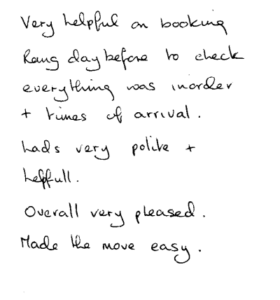 Very helpful on booking
Rang day before to check
everything was inorder
+ times of arrival.
Lads very polite +
helpfull.
Overall very pleased.
Made the move easy.